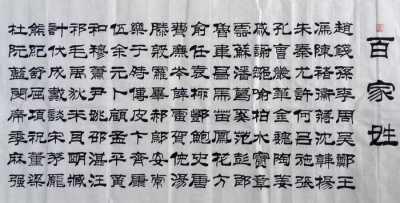 百家姓
趙錢孫李周吳鄭王
馮陳褚衛蔣沈韓楊
朱秦尤許何呂施張
孔曹嚴華金魏陶姜
戚謝鄒喻柏水竇章
雲蘇潘葛奚范彭郎
魯韋昌馬苗鳳花方
俞任袁柳酆鮑史唐
費廉岑薛雷賀倪湯
滕殷羅畢郝鄔安常
樂于時傅皮卞齊康
伍余元卜顧孟平黃
和穆蕭尹姚邵湛汪
祁毛禹狄米貝明臧
計伏成戴談宋茅龐
熊紀舒屈項祝董梁
杜阮藍閔席季麻強